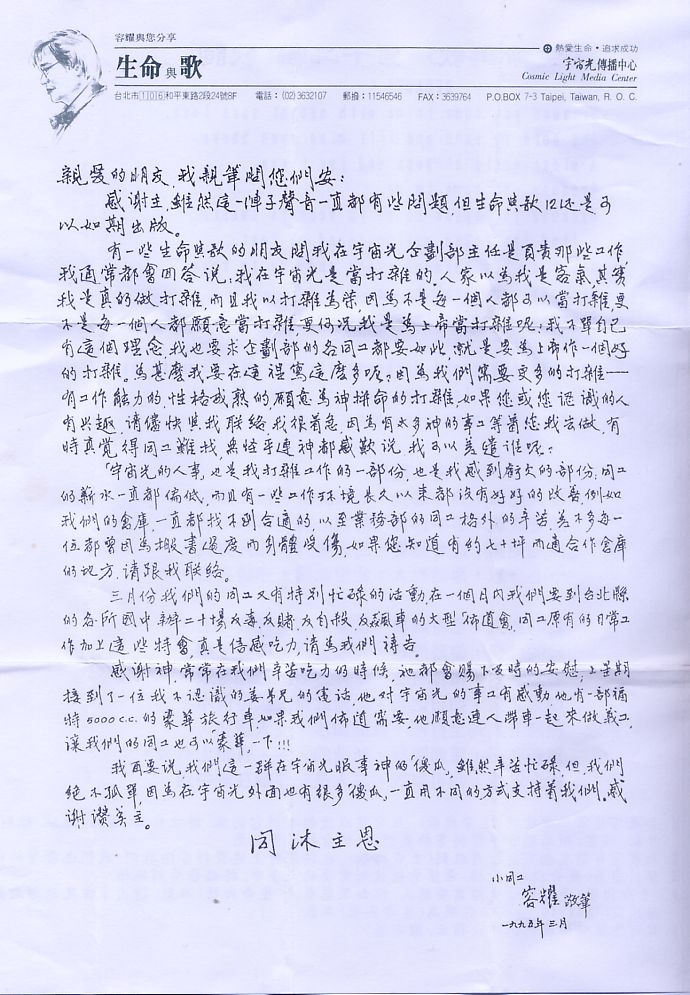 容耀與您分享
生命與歌
熱愛生命・追求成功
宇宙光傳播中心
Cosmic Light Media Center
台北市106和平東路2段24號8F 電話:(02)3632107 郵撥:11546546 FAX:3639764 P.O.BOX 7-3 Taipei, Taiwan, R. O. C.
親愛的朋友,我親筆問您們安:
感謝主,雖然這一陣子聲音一直都有些問題,但生命與歌12還是可
以如期出版。
有一些生命與歌的朋友問我在宇宙光企劃部主任是負責那些工作,
我通常都會回答說:我在宇宙光是當打雜的。人家以為我是客氣,其實
我是真的做打雜,而且我以打雜為榮,因為不是每一個人都可以當打雜,更
不是每一個人都願意當打雜,更何況我是為上帝當打雜呢!我不單自己
有這個理念,我也要求企劃部的各同工都要如此,就是要為上帝作一個好
的打雜。為甚麼我要在這裡寫這麼多呢?因為我們需要更多的打雜——
有工作能力的,性格成熟的,願意為神拼命的打雜,如果您或您認識的人
有興趣,請儘快與我聯絡,我很着急,因為有太多神的事工等着您我去做,有
時真覺得同工難找,無怪乎連神都感歎說,我可以差遣誰呢?
「宇宙光的人事」也是我打雜工作的一部份,也是我感到虧欠的部份,同工
的薪水一直都偏低,而且有一些工作環境長久以來都沒有好好的改善,例如
我們的倉庫,一直都找不到合適的,以至業務部的同工格外的辛苦,差不多每一
位都曾因為搬書過度而身體受傷,如果您知道有約七十坪而適合作倉庫
的地方,請跟我聯絡。
三月份我們的同工又有特別忙碌的活動,在一個月內我們要到台北縣
的各所國中辦二十場反毒、反賭、反自殺、反飆車的大型「佈道會」,同工原有的日常工
作加上這些特會,真是倍感吃力,請為我們禱告。
感謝神,常常在我們辛苦吃力的時候,祂都會賜下及時的安慰,上星期
接到了一位我不認識的姜弟兄的電話,他對宇宙光的事工有感動,他有一部福
特5000 c.c.的豪華旅行車,如果我們佈道需要,他願意連人帶車一起來做義工,
讓我們的同工也可以「豪華」一下!!!
我要說,我們這一群在宇宙光服事神的「傻瓜」,雖然辛苦忙碌,但,我們
絕不孤單,因為在宇宙光外面也有很多「傻瓜」,一直用不同的方式支持着我們。感
謝讚美主。
同沐主恩
小同工
容耀 敬筆
一九九五年三月